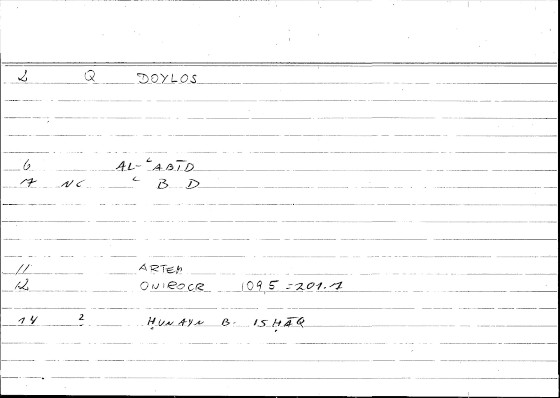 2 Q DOYLOS
6 AL-ʿABĪD
7 NC ʿ B D
11 ARTEM
12 ONIROCR 109,5 = 201.7
14 2 ḤUNAYN B. ISḤĀQ